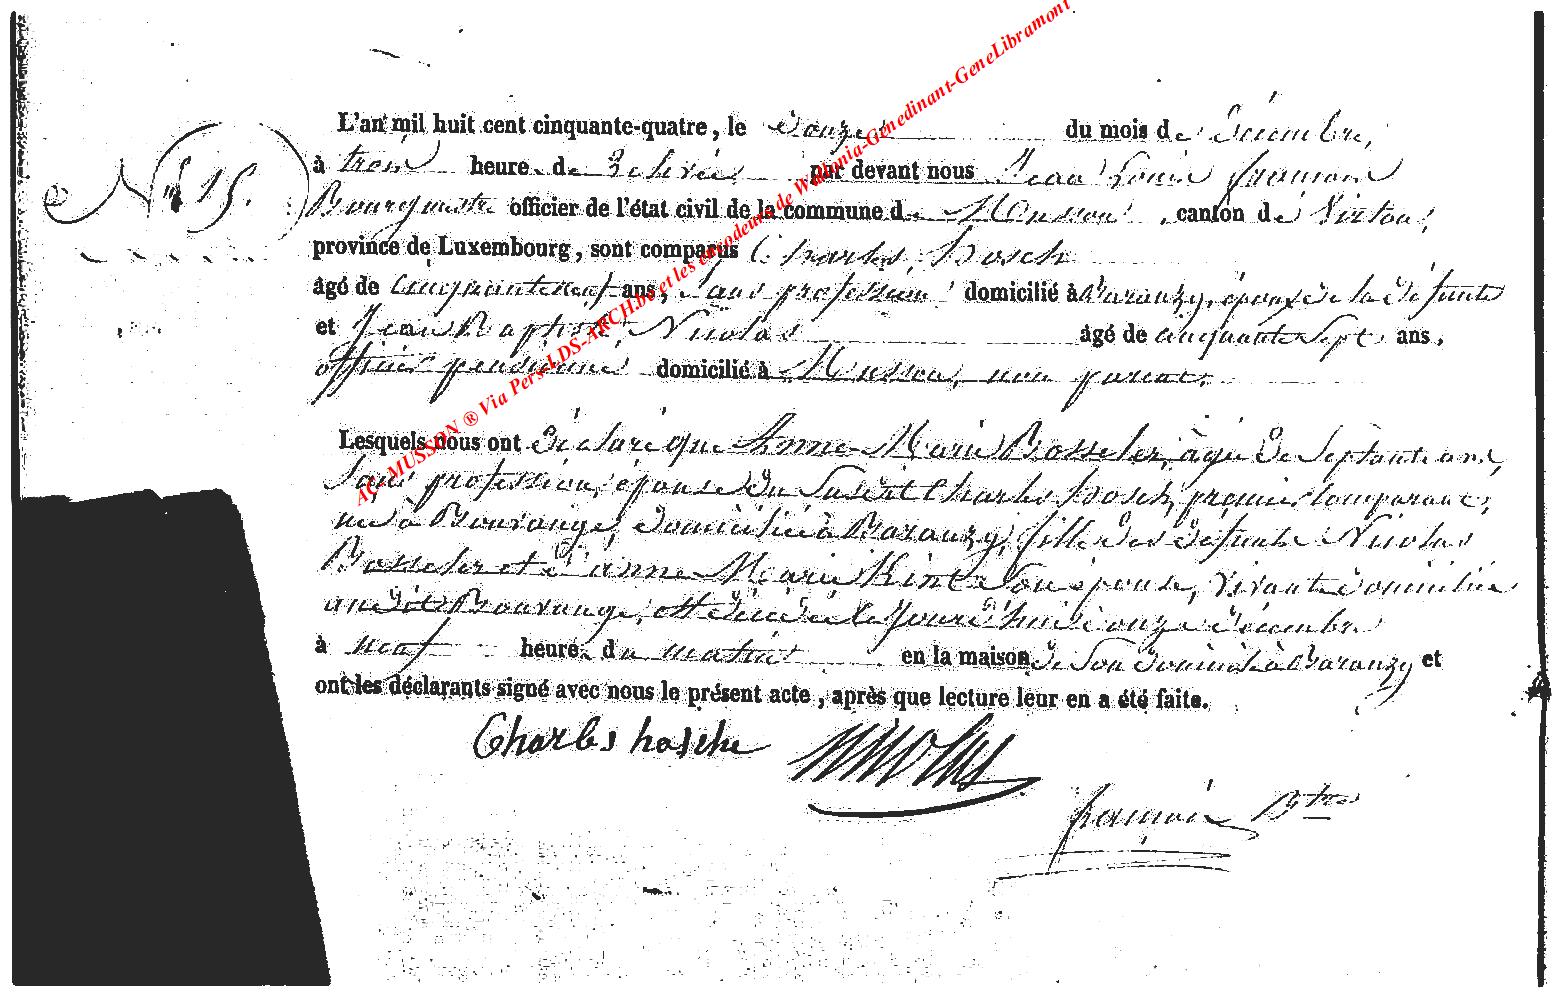 AC MUSSON ® Via Pers-LDS-ARCH.be et les encodeurs de Wallonia-Genedinant-GeneLibramont
N° 15.
L'an mil huit cent cinquante-quatre, le onze du mois de Décembre,
à trois heure de relevée par devant nous Jean Louis françois
Bourgmestre officier de l'état civil de la commune de Musson, canton de Virton,
province de Luxembourg, sont comparus Charles Hosch
âgé de cinquanteneuf ans, Sans profession domicilié à Baranzy, époux de la défunte
et Jean Baptiste Nicolas âgé de cinquante Sept ans.
officier pensionné domicilié à Musson, non parent.
Lesquels nous ont déclaré que Anne Marie Bosseler, agée de Septante ans,
Sans profession, épouse du Susdit Charles Hosch, premier Comparant,
née à Bouvange, domiciliée à Baranzy, fille des défunts Nicolas
Bosseler et d'anne Marie Son épouse, vivants domiciliés
audit Bouvange, est décédée le jourd'hui onze décembre
à neuf heure du matin en la maison de Son domicile à Baranzy et
ont les déclarants signé avec nous le présent acte, après que lecture leur en a été faite.
Charles hosche Nicolas
françois Btre